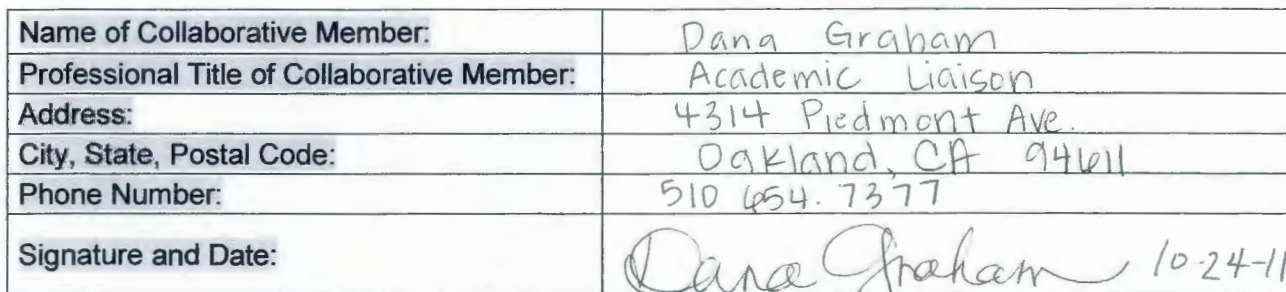 Name of Collaborative Member: Dana Graham
Professional Title of Collaborative Member: Academic Liaison
Address: 4314 Piedmont Ave.
City, State, Postal Code: Oakland, CA 94611
Phone Number: 510 654.7377
Signature and Date: Dana Graham 10-24-11